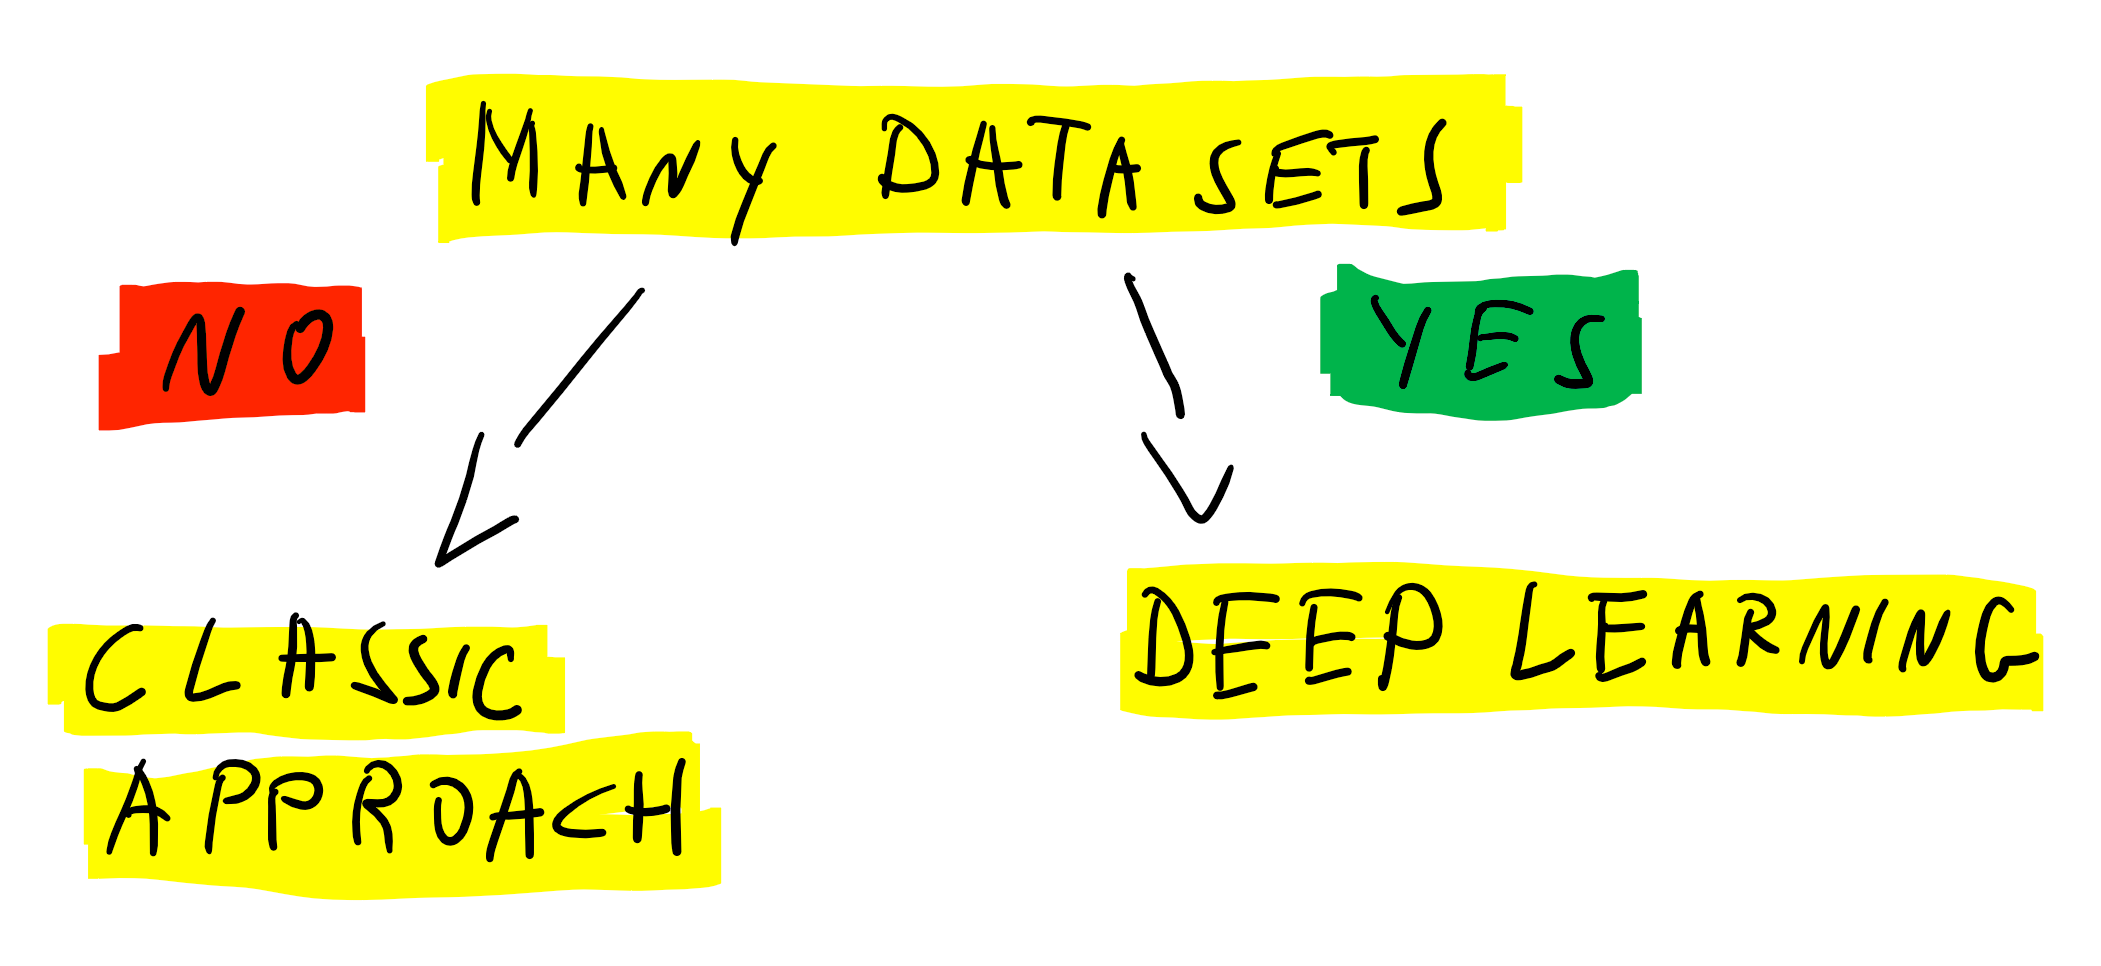 MANY DATASETS
NO
YES
CLASSIC
APPROACH
DEEP LEARNING